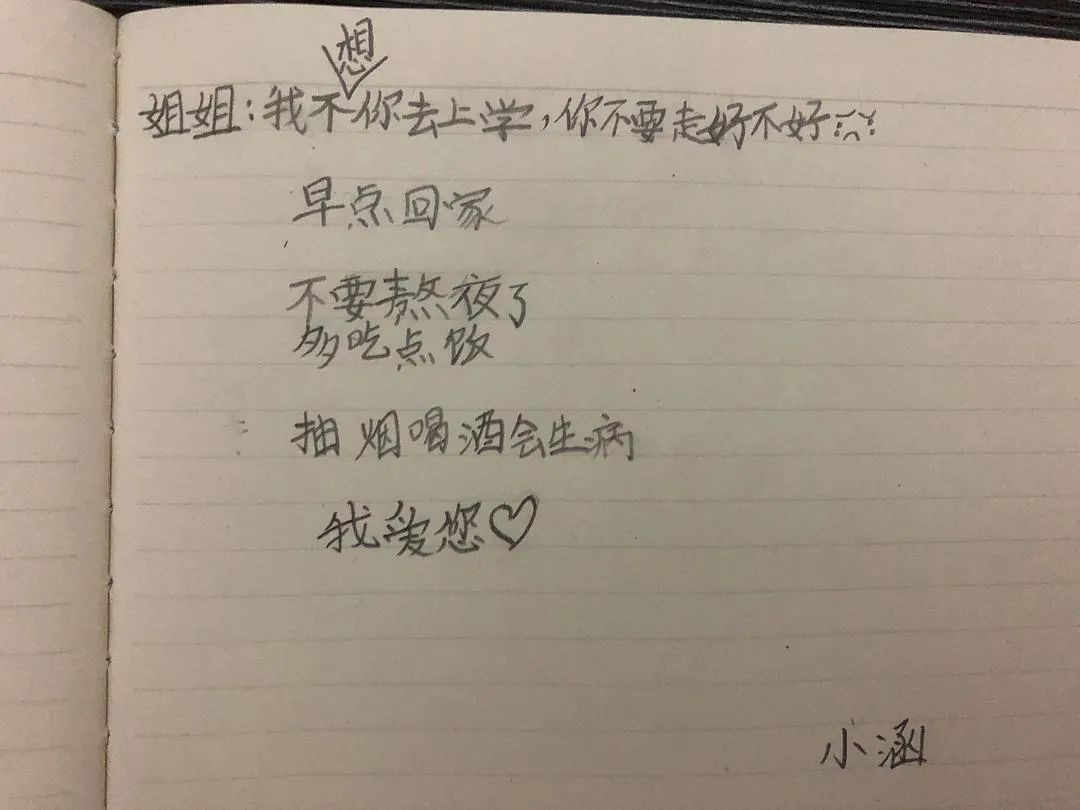 姐姐:我不想你去上学,你不要走好不好
早点回家
不要熬夜了
多吃点饭
抽烟喝酒会生病
我爱您♡
小涵